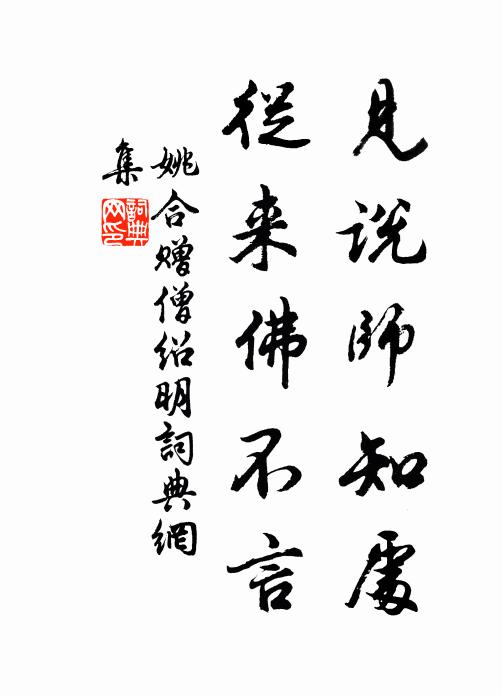 見説師知處
從来佛不言
姚合贈僧紹明詞典網
集
詞典網印